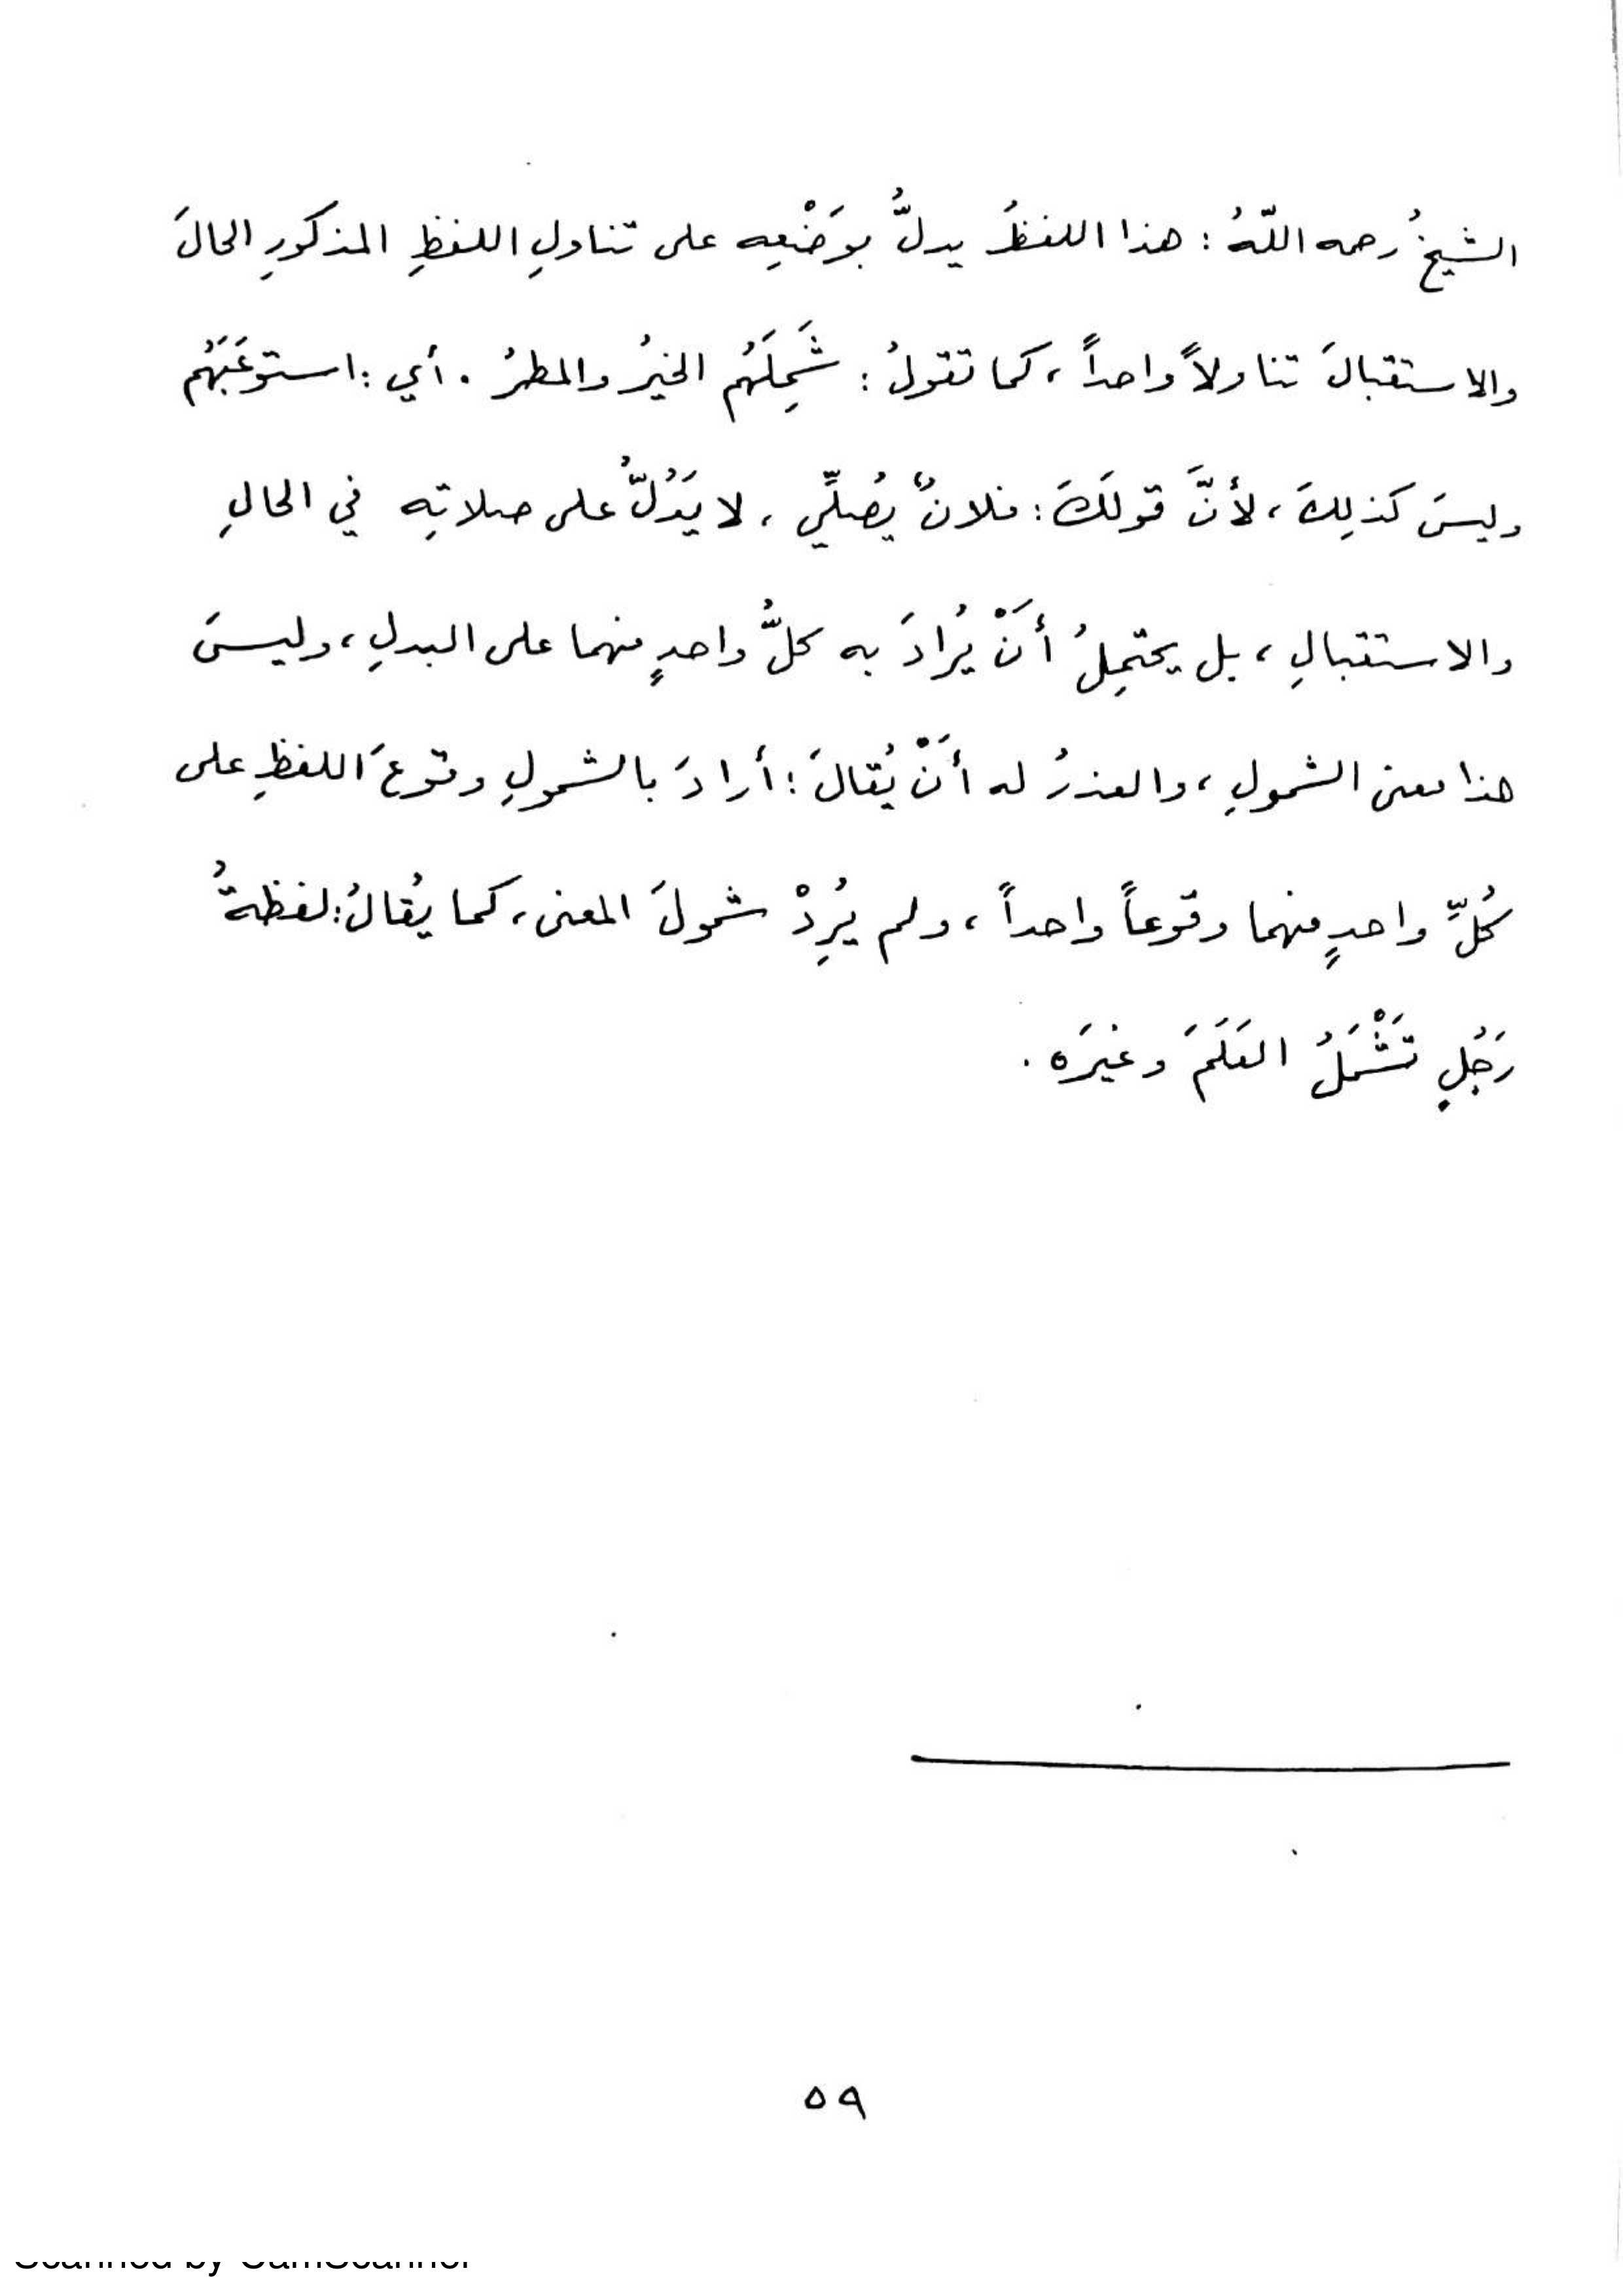 الشيخُ رحمه اللّهُ : هذا اللفظُ يدلُّ بوَضْعِه على تناولِ اللفظِ المذكورِ الحالَ
والاستقبالَ تناولاً واحداً ، كما تقولُ : شَمِلَهُم الخيرُ والمطرُ . أي : استوعَبَهُم
وليسَ كذلِكَ ، لأنَّ قولَكَ : فلانٌ يُصلِّي ، لا يَدُلُّ على صلاتِه في الحالِ
والاستقبالِ ، بل يحتمِلُ أَنْ يُرادَ به كلُّ واحدٍ منهما على البدلِ ، وليسَ
هذا معنى الشمولِ ، والعذرُ له أَنْ يُقالَ : أرادَ بالشمولِ وقوعَ اللفظِ على
كُلِّ واحدٍ منهما وقوعاً واحداً ، ولم يُرِدْ شمولَ المعنى ، كما يُقالُ : لفظةُ
رَجُلٍ تَشْمَلُ العَلَمَ وغيرَه .
٥٩
Scanned by CamScanner